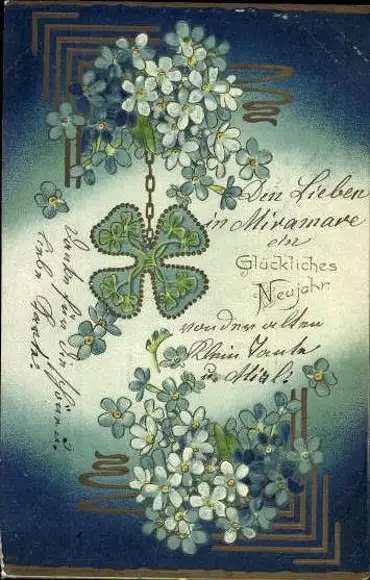 Den Lieben
in Miramare
ein
Glückliches
Neujahr
von der alten
Klein Tante
u. Mizl.
Danke für die
liebe Karte.